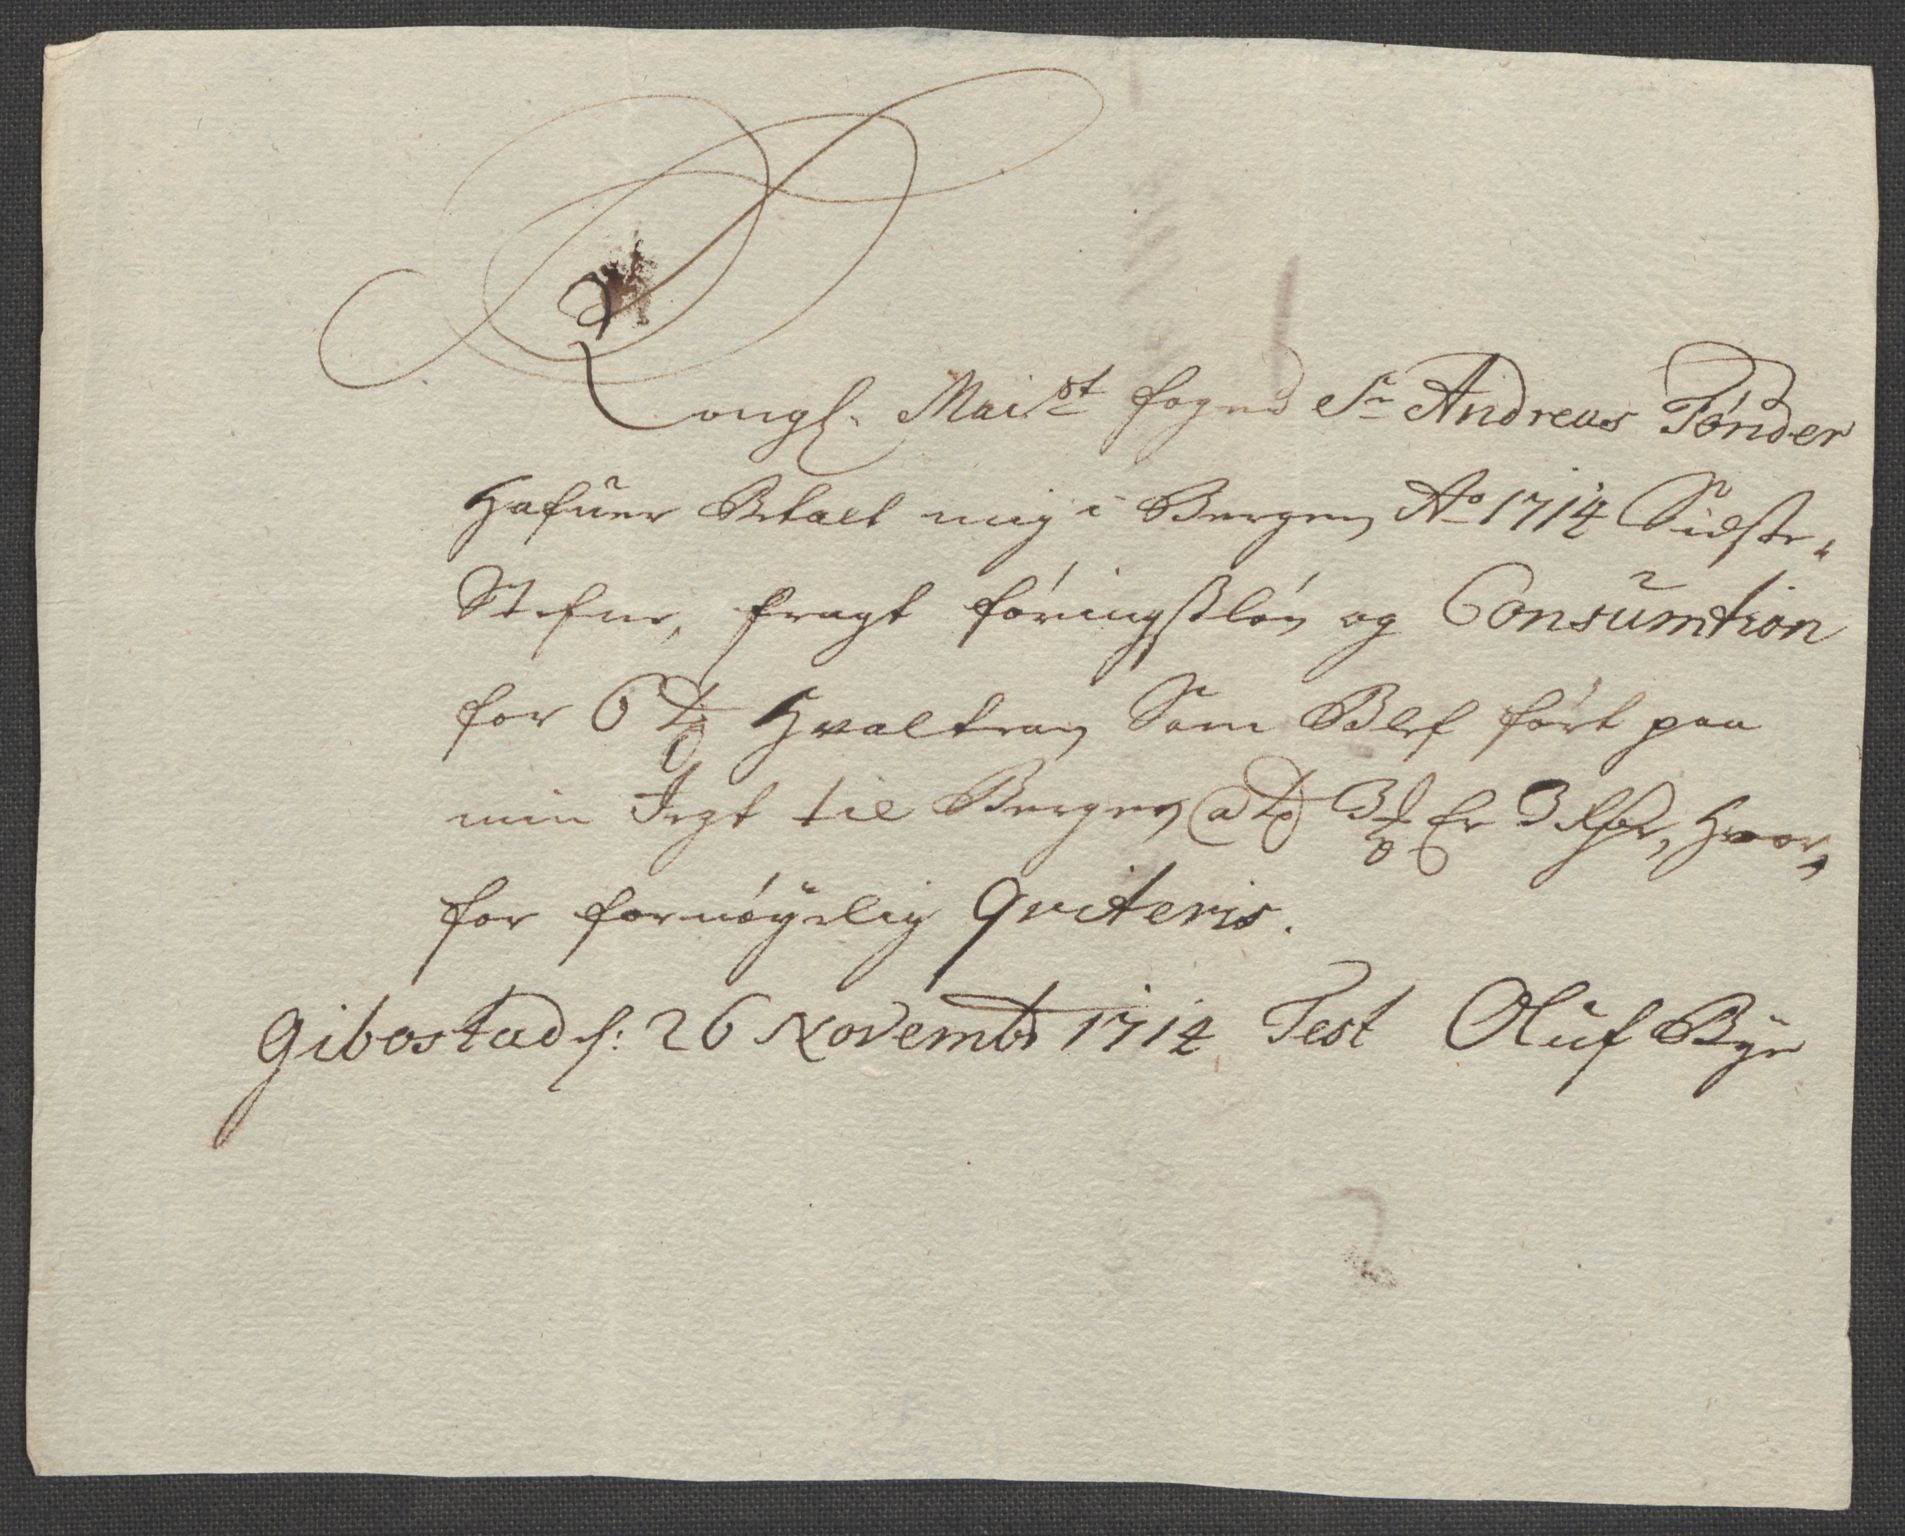 Kongl. Maist foged Sr Andreas Tønder
Hafuer Betalt mig i Bergen Ao 1714 Sidste
Stefne, fragt føringsløn og Consumtion
for 6 td Hvaltran Som Blef ført paa
min Jegt til Bergen a td 3 Er 3 Rdr, Hvor,
for fornøyelig qviteris.
Gibostad d: 26 Novembr 1714 Test Oluf Bye